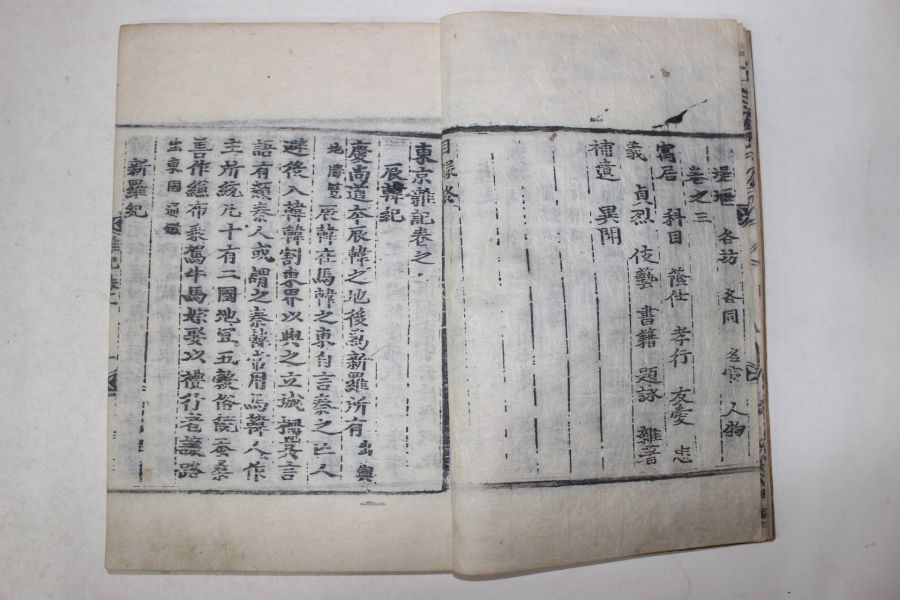 塋墟 各坊 各同 名宦 人物
卷之三
寓居 科目 蔭仕 孝行 友愛 忠
義 貞烈 伎藝 書籍 題詠 雜著
補遺 異聞
目錄終
東京雜記卷之
辰韓紀
慶尚道本辰韓之地後爲新羅所有出輿
地勝覽辰韓在馬韓之東自言秦之亡人
避役入韓韓割東界以與之立城柵其言
語有類秦人或謂之秦韓常用馬韓人作
主所統凡十有二國地宜五糓俗饒蚕桑
善作縑布乘駕牛馬嫁娶以禮行者讓路
出東國通鑑
新羅紀